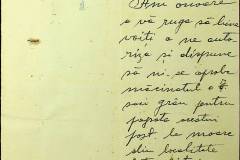 Am onoare
a vă ruga să bine
voiți a ne auto
riza și dispune
să ni se aprobe
măcinatul a 7
saci grâu pentru
popota acestui
post la moare
din localitate